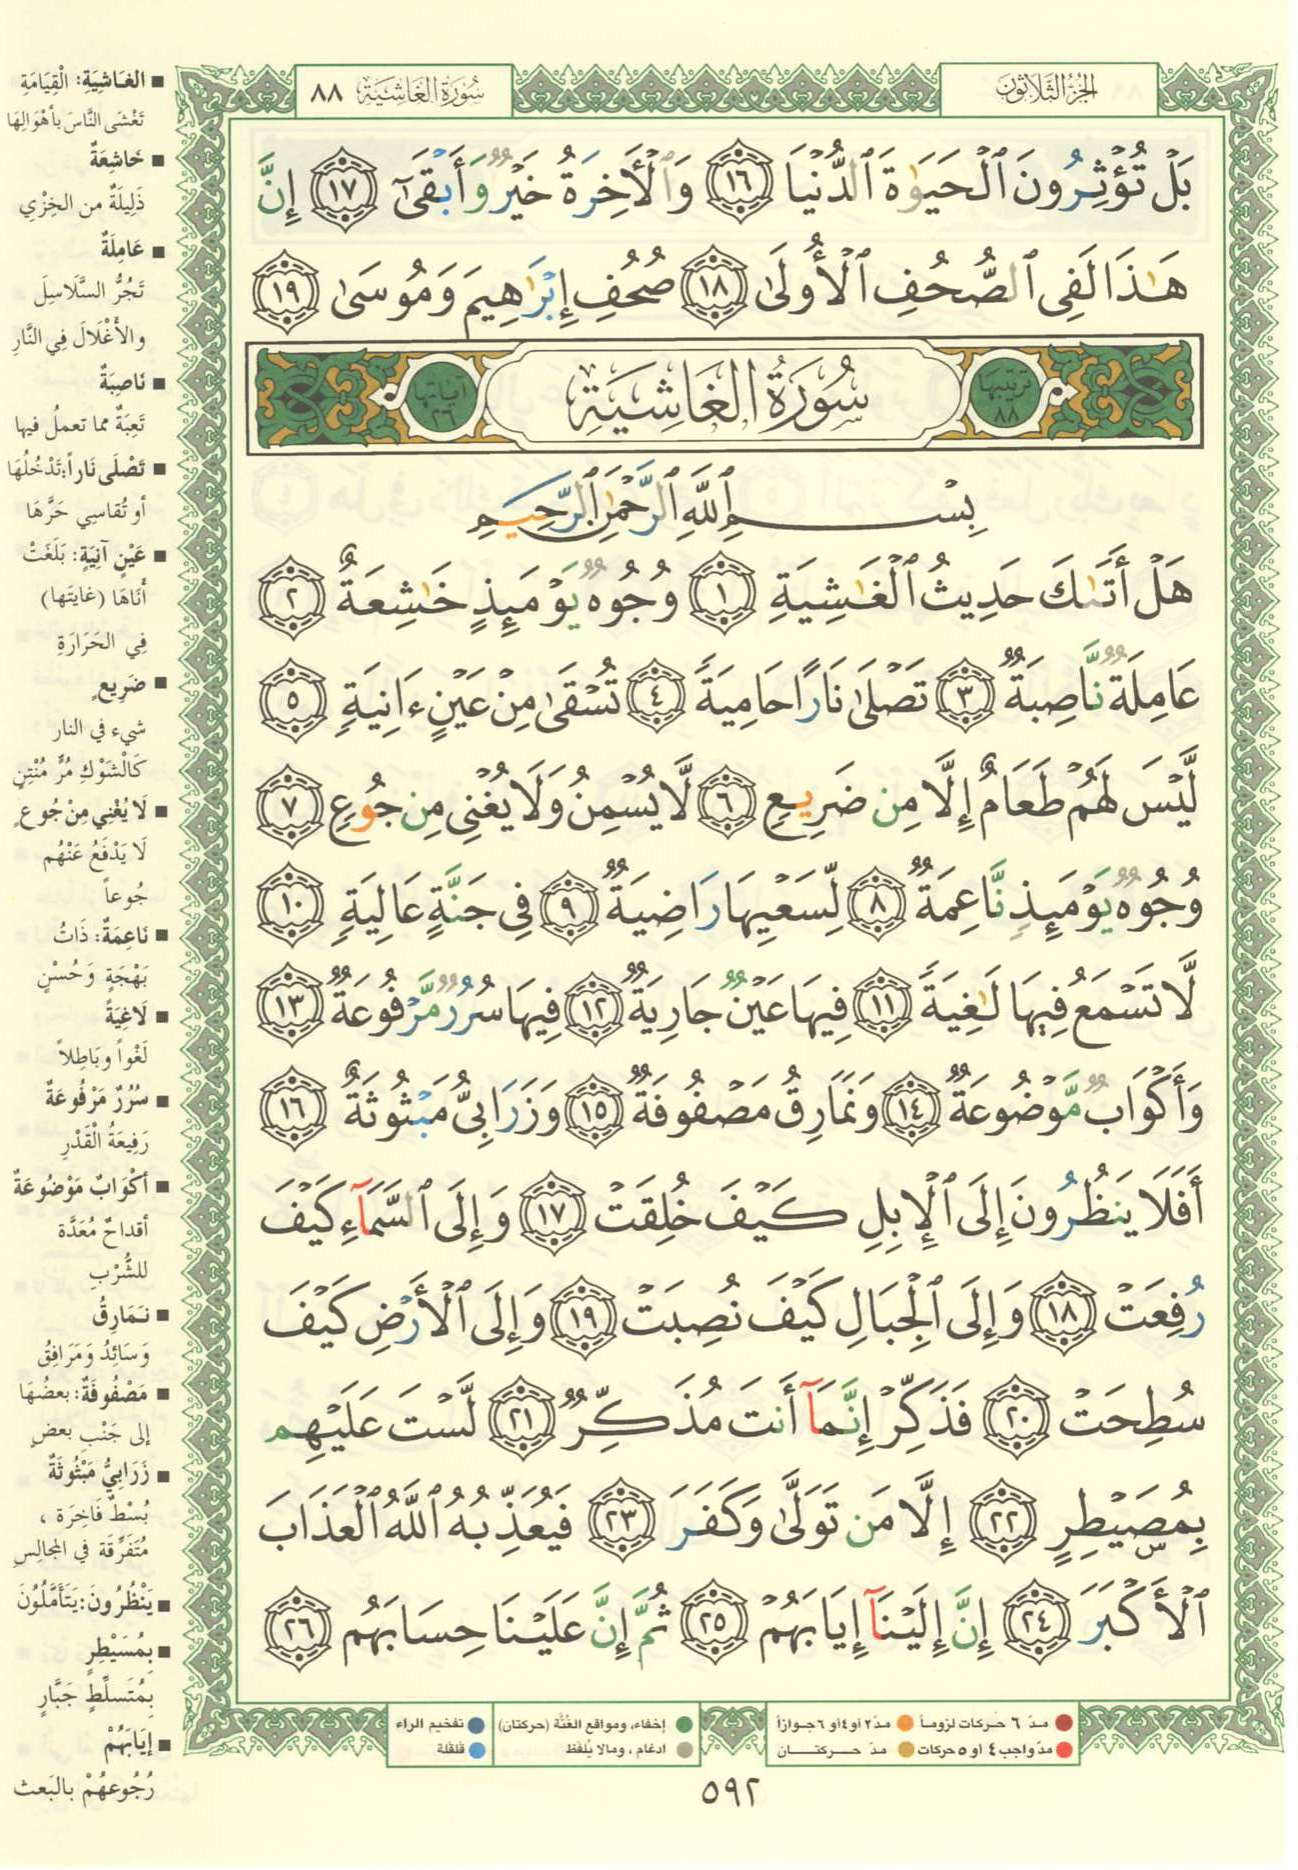 الجزء الثلاثون
سورة الغاشية ٨٨
بَلْ تُؤْثِرُونَ ٱلْحَيَوٰةَ ٱلدُّنْيَا ١٦ وَٱلْأَخِرَةُ خَيْرٌ وَأَبْقَىٰٓ ١٧ إِنَّ
هَـٰذَا لَفِى ٱلصُّحُفِ ٱلْأُولَىٰ ١٨ صُحُفِ إِبْرَٰهِيمَ وَمُوسَىٰ ١٩
ترتيبها ٨٨
سُورَةُ الغَاشِيَةِ
آياتها ٢٦
بِسْمِ ٱللَّهِ ٱلرَّحْمَـٰنِ ٱلرَّحِيمِ
هَلْ أَتَىٰكَ حَدِيثُ ٱلْغَـٰشِيَةِ ١ وُجُوهٌ يَوْمَئِذٍ خَـٰشِعَةٌ ٢
عَامِلَةٌ نَّاصِبَةٌ ٣ تَصْلَىٰ نَارًا حَامِيَةً ٤ تُسْقَىٰ مِنْ عَيْنٍ ءَانِيَةٍ ٥
لَّيْسَ لَهُمْ طَعَامٌ إِلَّا مِن ضَرِيعٍ ٦ لَّا يُسْمِنُ وَلَا يُغْنِى مِن جُوعٍ ٧
وُجُوهٌ يَوْمَئِذٍ نَّاعِمَةٌ ٨ لِّسَعْيِهَا رَاضِيَةٌ ٩ فِى جَنَّةٍ عَالِيَةٍ ١٠
لَّا تَسْمَعُ فِيهَا لَـٰغِيَةً ١١ فِيهَا عَيْنٌ جَارِيَةٌ ١٢ فِيهَا سُرُرٌ مَّرْفُوعَةٌ ١٣
وَأَكْوَابٌ مَّوْضُوعَةٌ ١٤ وَنَمَارِقُ مَصْفُوفَةٌ ١٥ وَزَرَابِىُّ مَبْثُوثَةٌ ١٦
أَفَلَا يَنظُرُونَ إِلَى ٱلْإِبِلِ كَيْفَ خُلِقَتْ ١٧ وَإِلَى ٱلسَّمَآءِ كَيْفَ
رُفِعَتْ ١٨ وَإِلَى ٱلْجِبَالِ كَيْفَ نُصِبَتْ ١٩ وَإِلَى ٱلْأَرْضِ كَيْفَ
سُطِحَتْ ٢٠ فَذَكِّرْ إِنَّمَآ أَنتَ مُذَكِّرٌ ٢١ لَّسْتَ عَلَيْهِم
بِمُصَيْطِرٍ ٢٢ إِلَّا مَن تَوَلَّىٰ وَكَفَرَ ٢٣ فَيُعَذِّبُهُ ٱللَّهُ ٱلْعَذَابَ
ٱلْأَكْبَرَ ٢٤ إِنَّ إِلَيْنَآ إِيَابَهُمْ ٢٥ ثُمَّ إِنَّ عَلَيْنَا حِسَابَهُم ٢٦
■ الغَاشِيَةِ: الْقِيَامَةِ
تَغْشَى النَّاسَ بأهْوَالِهَا
■ خَاشِعَةٌ
ذَلِيلَةٌ من الخِزْي
■ عَامِلَةٌ
تَجُرُّ السَّلَاسِلَ
والأَغْلَالَ فِي النَّارِ
■ نَاصِبَةٌ
تَعِبَةٌ مما تعملُ فيها
■ تَصْلَى نَاراً: تَدْخُلُهَا
أو تُقَاسِي حَرَّهَا
■ عَيْنٍ آنِيَةٍ: بَلَغَتْ
أَنَاهَا (غايتَها)
فِي الحَرَارَةِ
■ ضَرِيعٍ
شيء في النار
كَالْشَوْكِ مُرٌّ مُنْتِنٍ
■ لَا يُغْنِي مِنْ جُوعٍ
لَا يَدْفَعُ عَنْهُم
جُوعاً
■ نَاعِمَةٌ: ذَاتُ
بَهْجَةٍ وَحُسْنٍ
■ لَاغِيَةً
لَغْواً وبَاطِلاً
■ سُرُرٌ مَرْفُوعَةٌ
رَفِيعَةُ الْقَدْرِ
■ أكْوَابٌ مَوْضُوعَةٌ
أقداحٌ مُعَدَّة
للشُّرْبِ
■ نَمَارِقُ
وَسَائِدُ وَمَرَافِقُ
■ مَصْفُوفَةٌ: بعضُهَا
إلى جَنْبِ بعضٍ
■ زَرَابِيُّ مَبْثُوثَةٌ
بُسُطٌ فَاخِرَة ،
مُتَفَرِّقَة في المَجالِسِ
■ يَنْظُرُونَ: يَتَأَمَّلُونَ
■ بِمُسَيْطِرٍ
بِمُتَسلِّطٍ جَبَّارٍ
■ إيَابَهُمْ
رُجُوعهُمْ بالبَعث
مدّ ٦ حركات لزوماً
مدّ ٢ أو ٤ أو ٦ جوازاً
مدّ واجب ٤ أو ٥ حركات
مدّ حركتان
إخفاء، ومواقع الغُنَّة (حركتان)
ادغام، ومالا يُلفَظ
تفخيم الراء
قلقلة
٥٩٢